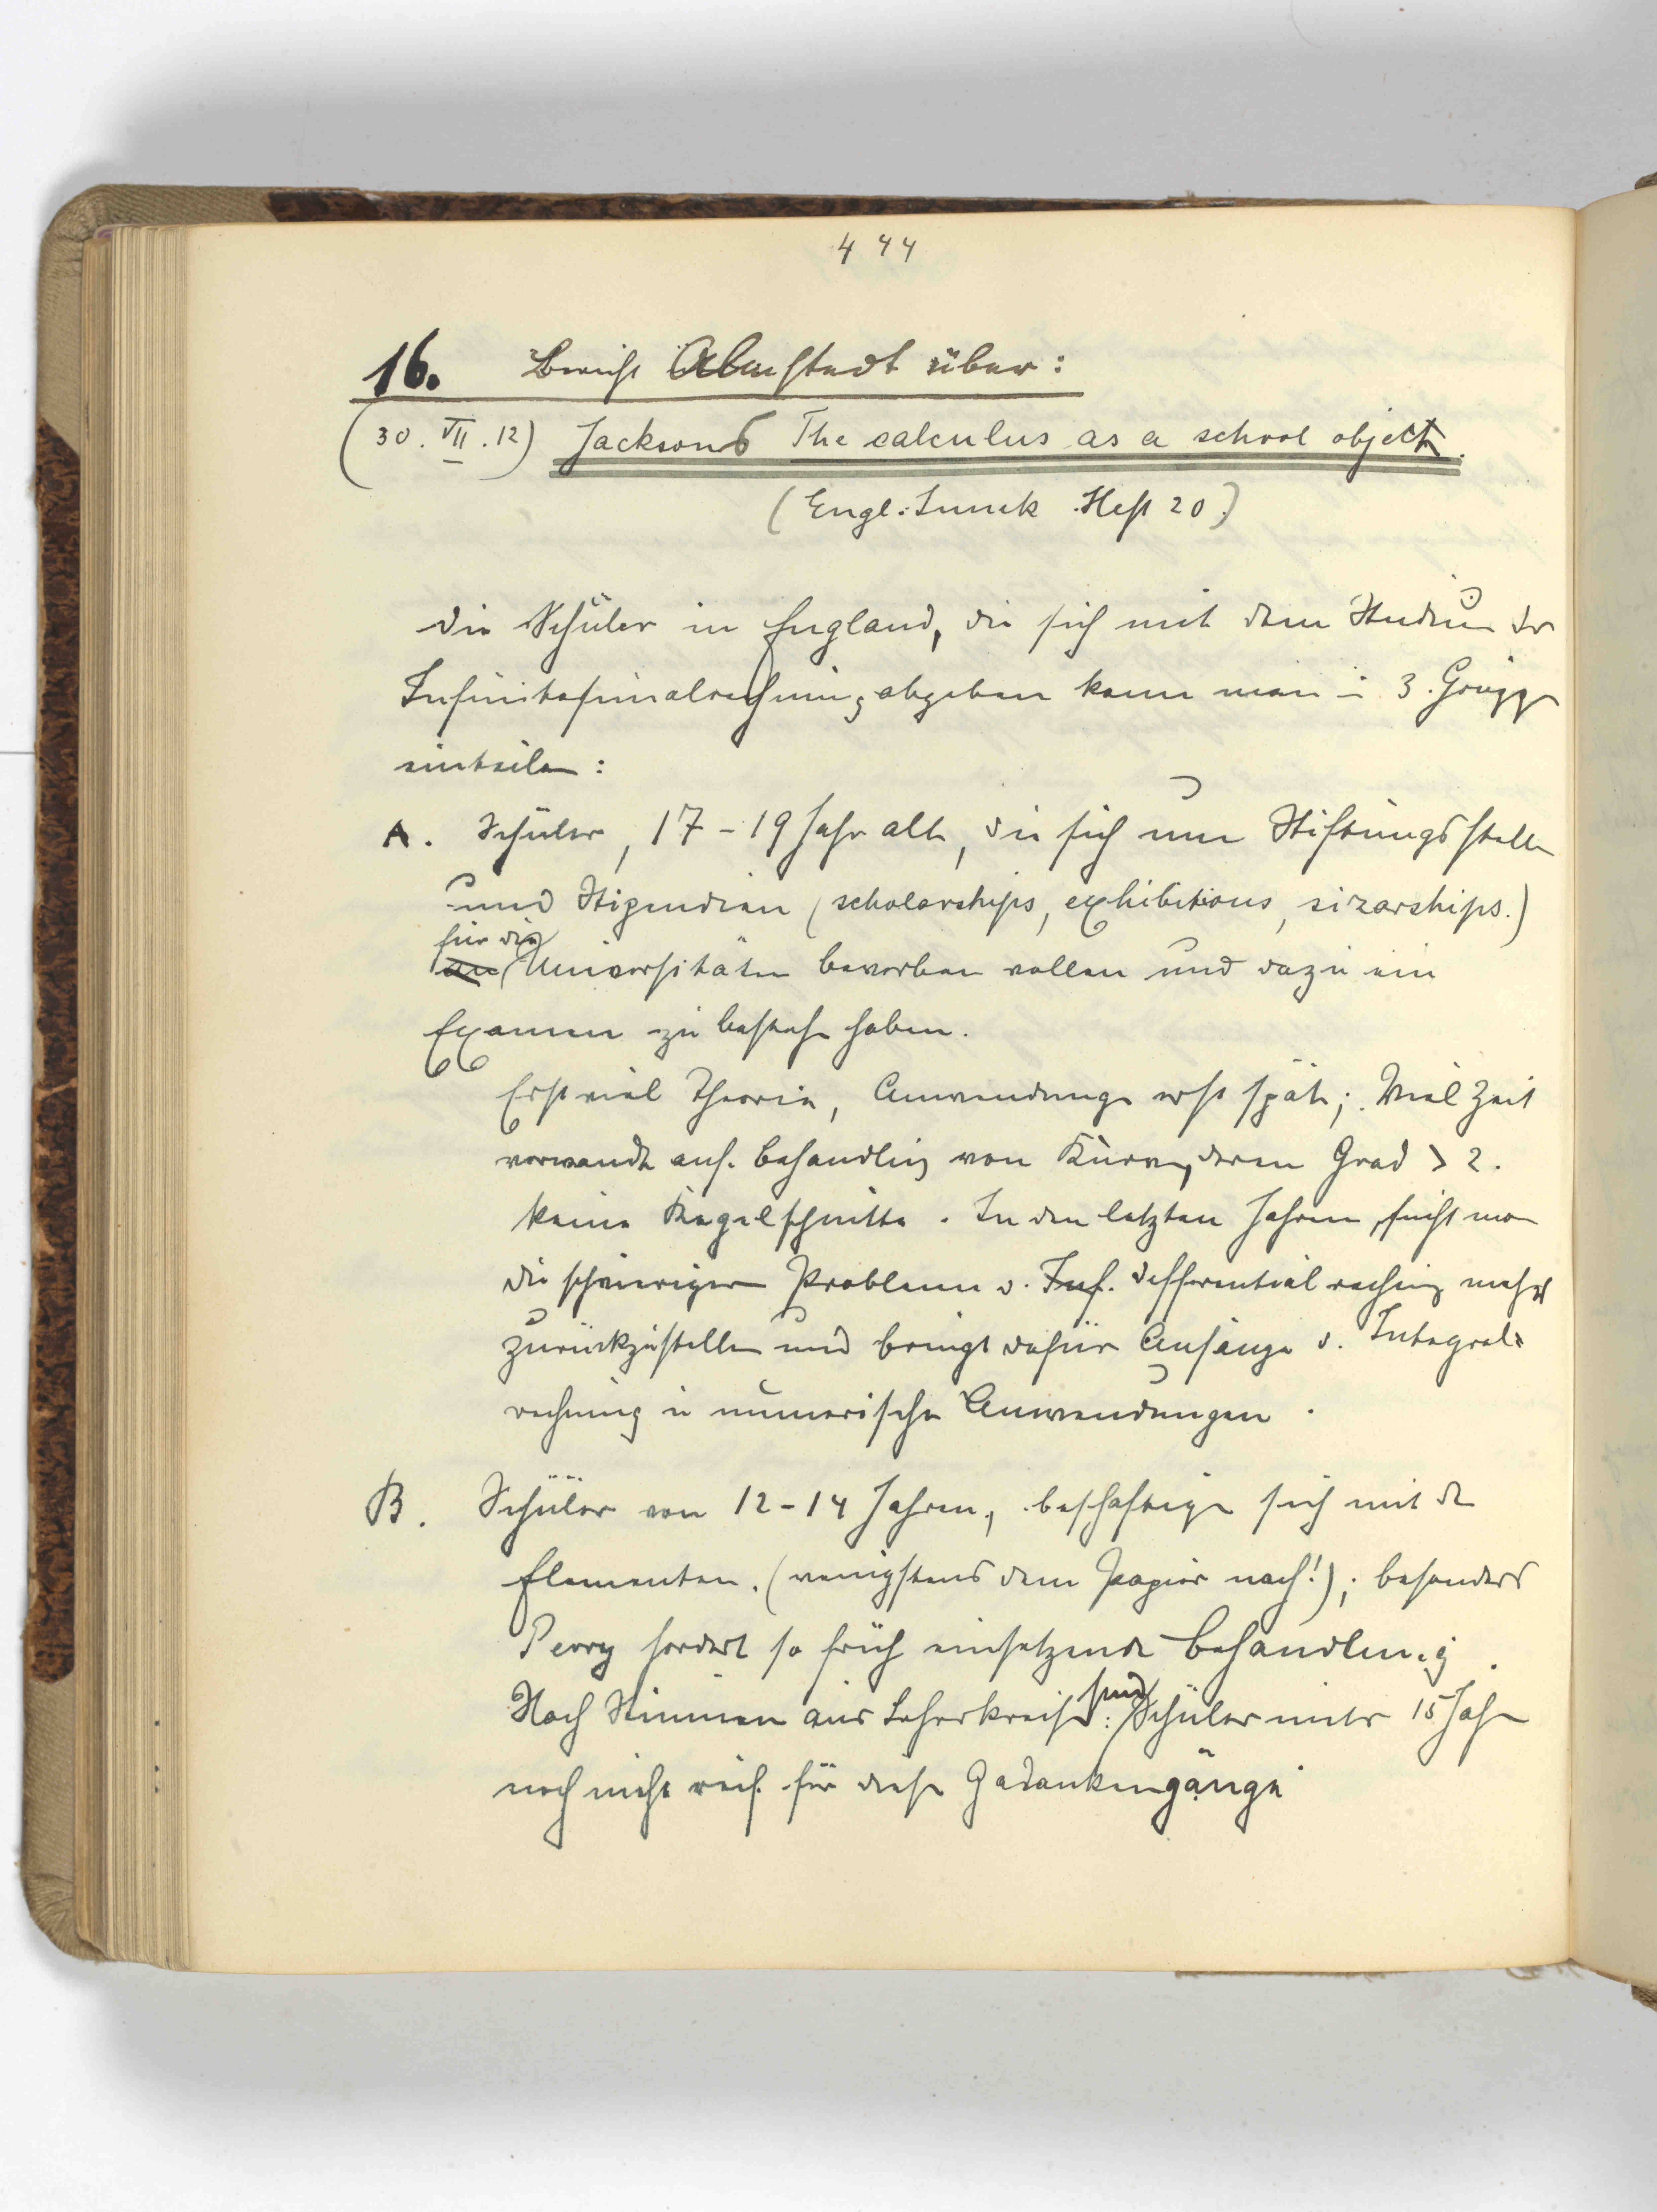 444
16. Bericht Almstedt über:
(30. VII. 12) Jacksons The calculus as a school object.
(Engl. Heft 20.)
Die Schüler in England, die sich mit dem Studium der
Infinitesimalrechnung abgeben kann man in 3 Gruppen
einteilen:
A. Schüler, 17-19 Jahr alt, die sich um Stiftungsstellen
und Stipendien (scholarships, exhibitions, sizarships.)
für die Universitäten bewerben wollen und dazu ein
Examen zu bestehen haben.
Erst viel Theorie, Anwendungen erst spät; Viel Zeit
verwandt auf Behandlung von Kurven, deren Grad > 2.
keine Kegelschnitte. In den letzten Jahren, sucht man
die schwierigeren Probleme d. Inf. Differentialrechnung mehr
zurückzustellen und bringt dafür Anfänge d. Integral-
rechnung u numerische Anwendungen.
B. Schüler von 12-14 Jahren, beschäftigen sich mit den
Elementen. (wenigstens dem Papier nach!); besonders
Perry fordert so früh einsetzende Behandlung.
Nach Stimmen aus Lehrerkreisen: sind Schüler unter 15 Jahren
noch nicht reif für diese Gedankengänge